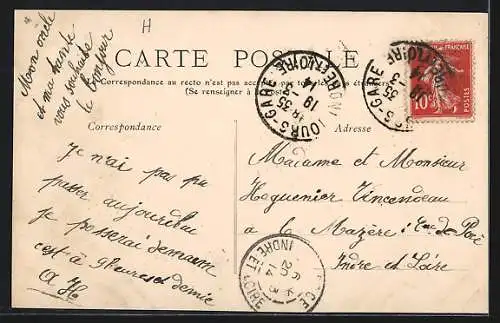 H
Mon oncle
et ma tante
vous souhaite
le bonjour
CARTE POSTALE
Correspondance au recto n'est pas
(Se renseigner à
TOURS-GARE
18 35
INDRE ET LOIRE
TOURS-GARE
18 35
INDRE ET LOIRE
FRANÇAISE
10
POSTES
Correspondance
Adresse
Je n'ai pas pu
passer aujourd'hui
je passerai demain
c'est à 9 heures et demie
A. H
Madame et Monsieur
Hoguenier Vincendeau
à la Mazère
Indre et Loire
INDRE ET LOIRE